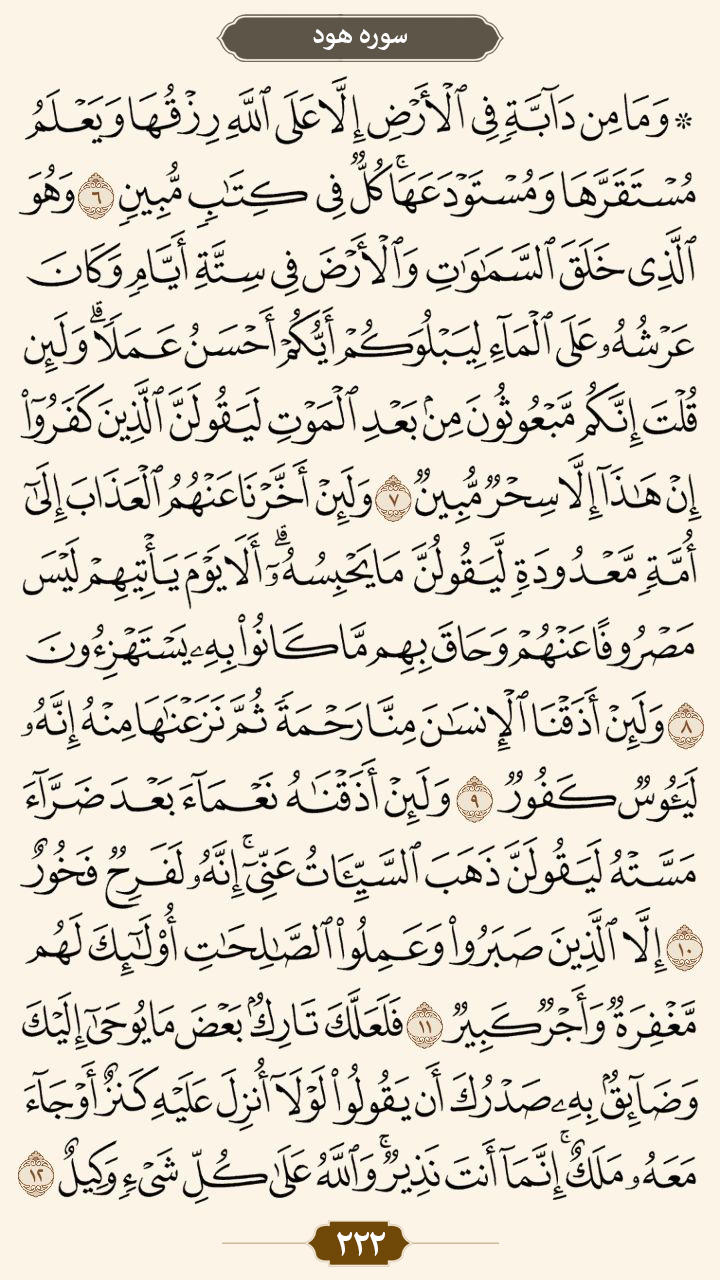 سوره هود
۞ وَمَا مِن دَآبَّةٍ فِي ٱلْأَرْضِ إِلَّا عَلَى ٱللَّهِ رِزْقُهَا وَيَعْلَمُ
مُسْتَقَرَّهَا وَمُسْتَوْدَعَهَا ۚ كُلٌّ فِي كِتَٰبٍ مُّبِينٍ ٦ وَهُوَ
ٱلَّذِي خَلَقَ ٱلسَّمَٰوَٰتِ وَٱلْأَرْضَ فِي سِتَّةِ أَيَّامٍ وَكَانَ
عَرْشُهُۥ عَلَى ٱلْمَآءِ لِيَبْلُوَكُمْ أَيُّكُمْ أَحْسَنُ عَمَلًا ۗ وَلَئِن
قُلْتَ إِنَّكُم مَّبْعُوثُونَ مِنۢ بَعْدِ ٱلْمَوْتِ لَيَقُولَنَّ ٱلَّذِينَ كَفَرُوٓا۟
إِنْ هَٰذَآ إِلَّا سِحْرٌ مُّبِينٌ ٧ وَلَئِنْ أَخَّرْنَا عَنْهُمُ ٱلْعَذَابَ إِلَىٰٓ
أُمَّةٍ مَّعْدُودَةٍ لَّيَقُولُنَّ مَا يَحْبِسُهُۥٓ ۗ أَلَا يَوْمَ يَأْتِيهِمْ لَيْسَ
مَصْرُوفًا عَنْهُمْ وَحَاقَ بِهِم مَّا كَانُوا۟ بِهِۦ يَسْتَهْزِءُونَ
٨ وَلَئِنْ أَذَقْنَا ٱلْإِنسَٰنَ مِنَّا رَحْمَةً ثُمَّ نَزَعْنَٰهَا مِنْهُ إِنَّهُۥ
لَيَـُٔوسٌ كَفُورٌ ٩ وَلَئِنْ أَذَقْنَٰهُ نَعْمَآءَ بَعْدَ ضَرَّآءَ
مَسَّتْهُ لَيَقُولَنَّ ذَهَبَ ٱلسَّيِّـَٔاتُ عَنِّيٓ ۚ إِنَّهُۥ لَفَرِحٌ فَخُورٌ
١٠ إِلَّا ٱلَّذِينَ صَبَرُوا۟ وَعَمِلُوا۟ ٱلصَّٰلِحَٰتِ أُو۟لَٰٓئِكَ لَهُم
مَّغْفِرَةٌ وَأَجْرٌ كَبِيرٌ ١١ فَلَعَلَّكَ تَارِكٌۢ بَعْضَ مَا يُوحَىٰٓ إِلَيْكَ
وَضَآئِقٌۢ بِهِۦ صَدْرُكَ أَن يَقُولُوا۟ لَوْلَآ أُنزِلَ عَلَيْهِ كَنزٌ أَوْ جَآءَ
مَعَهُۥ مَلَكٌ ۚ إِنَّمَآ أَنتَ نَذِيرٌ ۚ وَٱللَّهُ عَلَىٰ كُلِّ شَيْءٍ وَكِيلٌ ١٢
٢٢٢